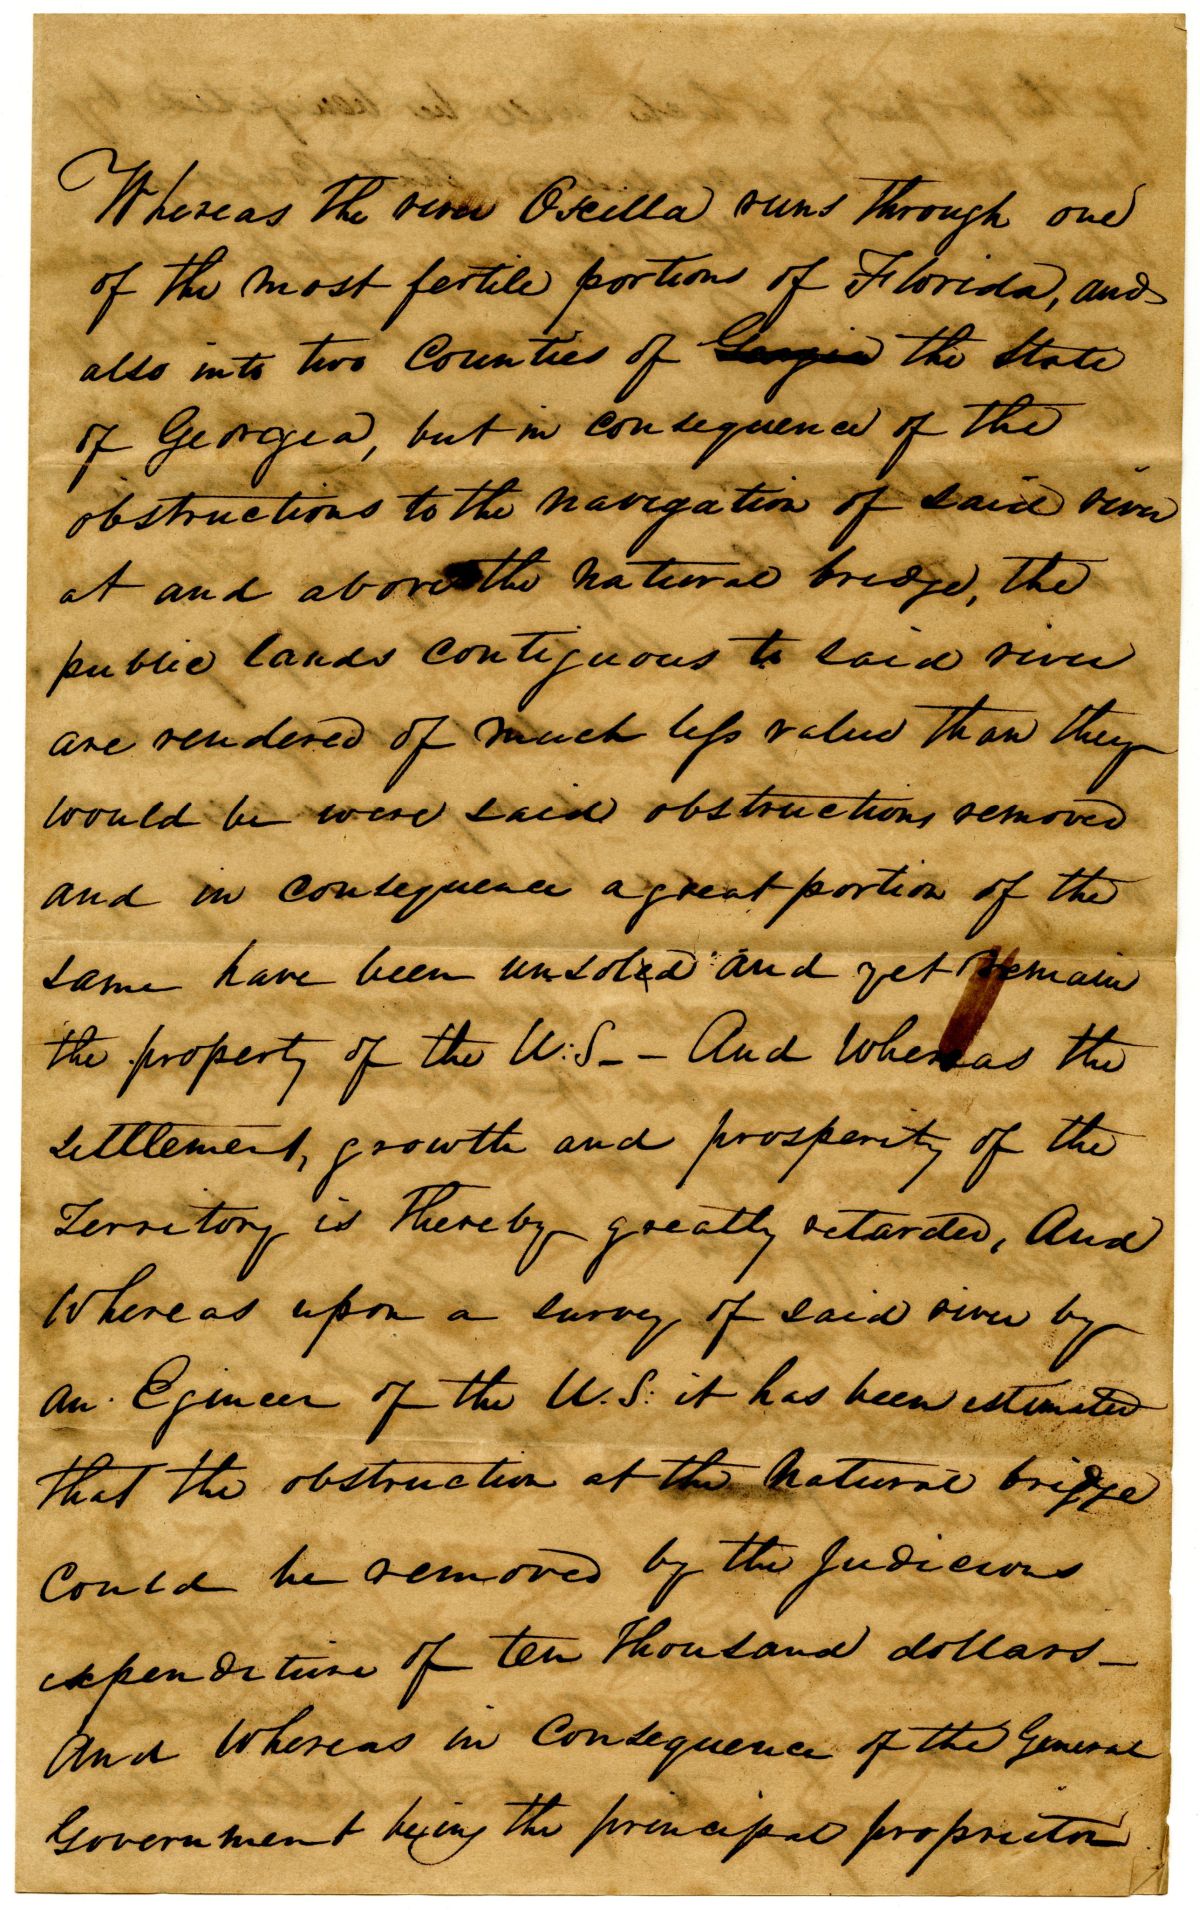 Whereas the river Oscilla runs through one
of the most fertile portions of Florida, and
also into two Counties of Georgia the State
of Georgia, but in consequence of the
obstructions to the navigation of said river
at and above the natural bridge, the
public lands contiguous to said river
are rendered of much less value than they
would be were said obstructions removed
and in consequence a great portion of the
same have been unsold and yet remain
the property of the U.S. – And Whereas the
settlement, growth and prosperity of the
Territory is thereby greatly retarded, And
Whereas upon a survey of said river by
an Egineer of the U.S. it has been estimated
that the obstruction at the natural bridge
could be removed by the Judicious
expenditure of ten thousand dollars –
And Whereas in Consequence of the General
Government being the principal proprietor